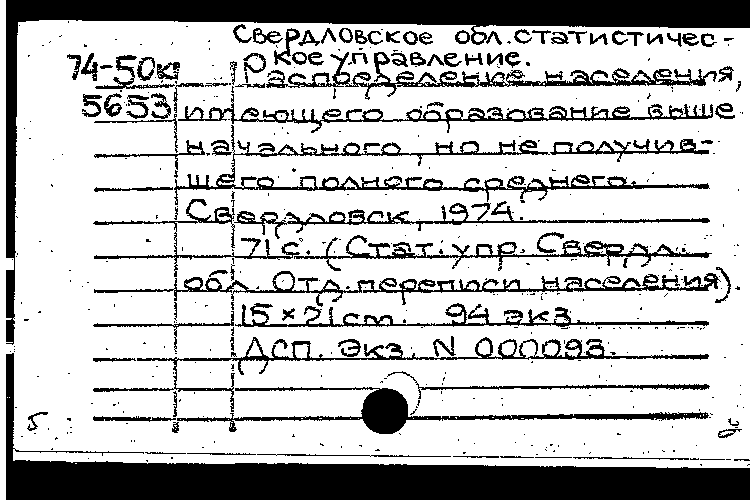 Свердловское обл. статистичес-
кое управление.
74-50к Распределение населения,
5653 имеющего образование выше
начального, но не получив-
шего полного среднего.
Свердловск, 1974.
71 с. (Стат. упр. Свердл.
обл. Отд. переписи населения).
15 × 21 см. 94 экз.
ДСП. Экз. N 000093.